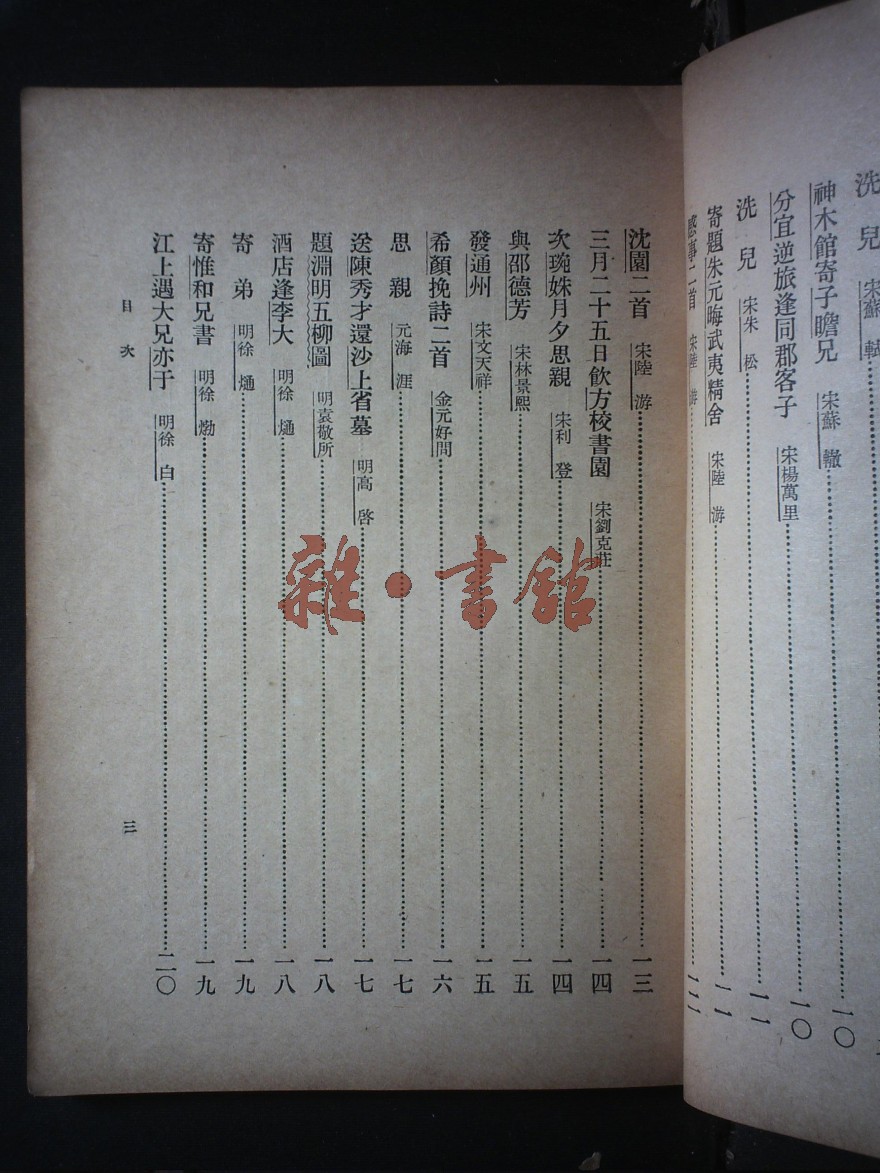 洗兒 宋蘇軾
神木館寄子瞻兄 宋蘇轍 一〇
分宜逆旅逢同郡客子 宋楊萬里 一〇
洗兒 宋朱松 一一
寄題朱元晦武夷精舍 宋陸游 一一
感事二首 宋陸游 一二
沈園二首 宋陸游 一三
三月二十五日飲方校書園 宋劉克莊 一四
次琬妹月夕思親 宋利登 一四
與邵德芳 宋林景熙 一五
發通州 宋文天祥 一五
希顏挽詩二首 金元好問 一六
思親 元海涯 一七
送陳秀才還沙上省墓 明高啓 一七
題淵明五柳圖 明袁敬所 一八
酒店逢李大 明徐熥 一八
寄弟 明徐熥 一九
寄惟和兄書 明徐𤊹 一九
江上遇大兄亦于 明徐白 二〇
目次
三
雜·書館